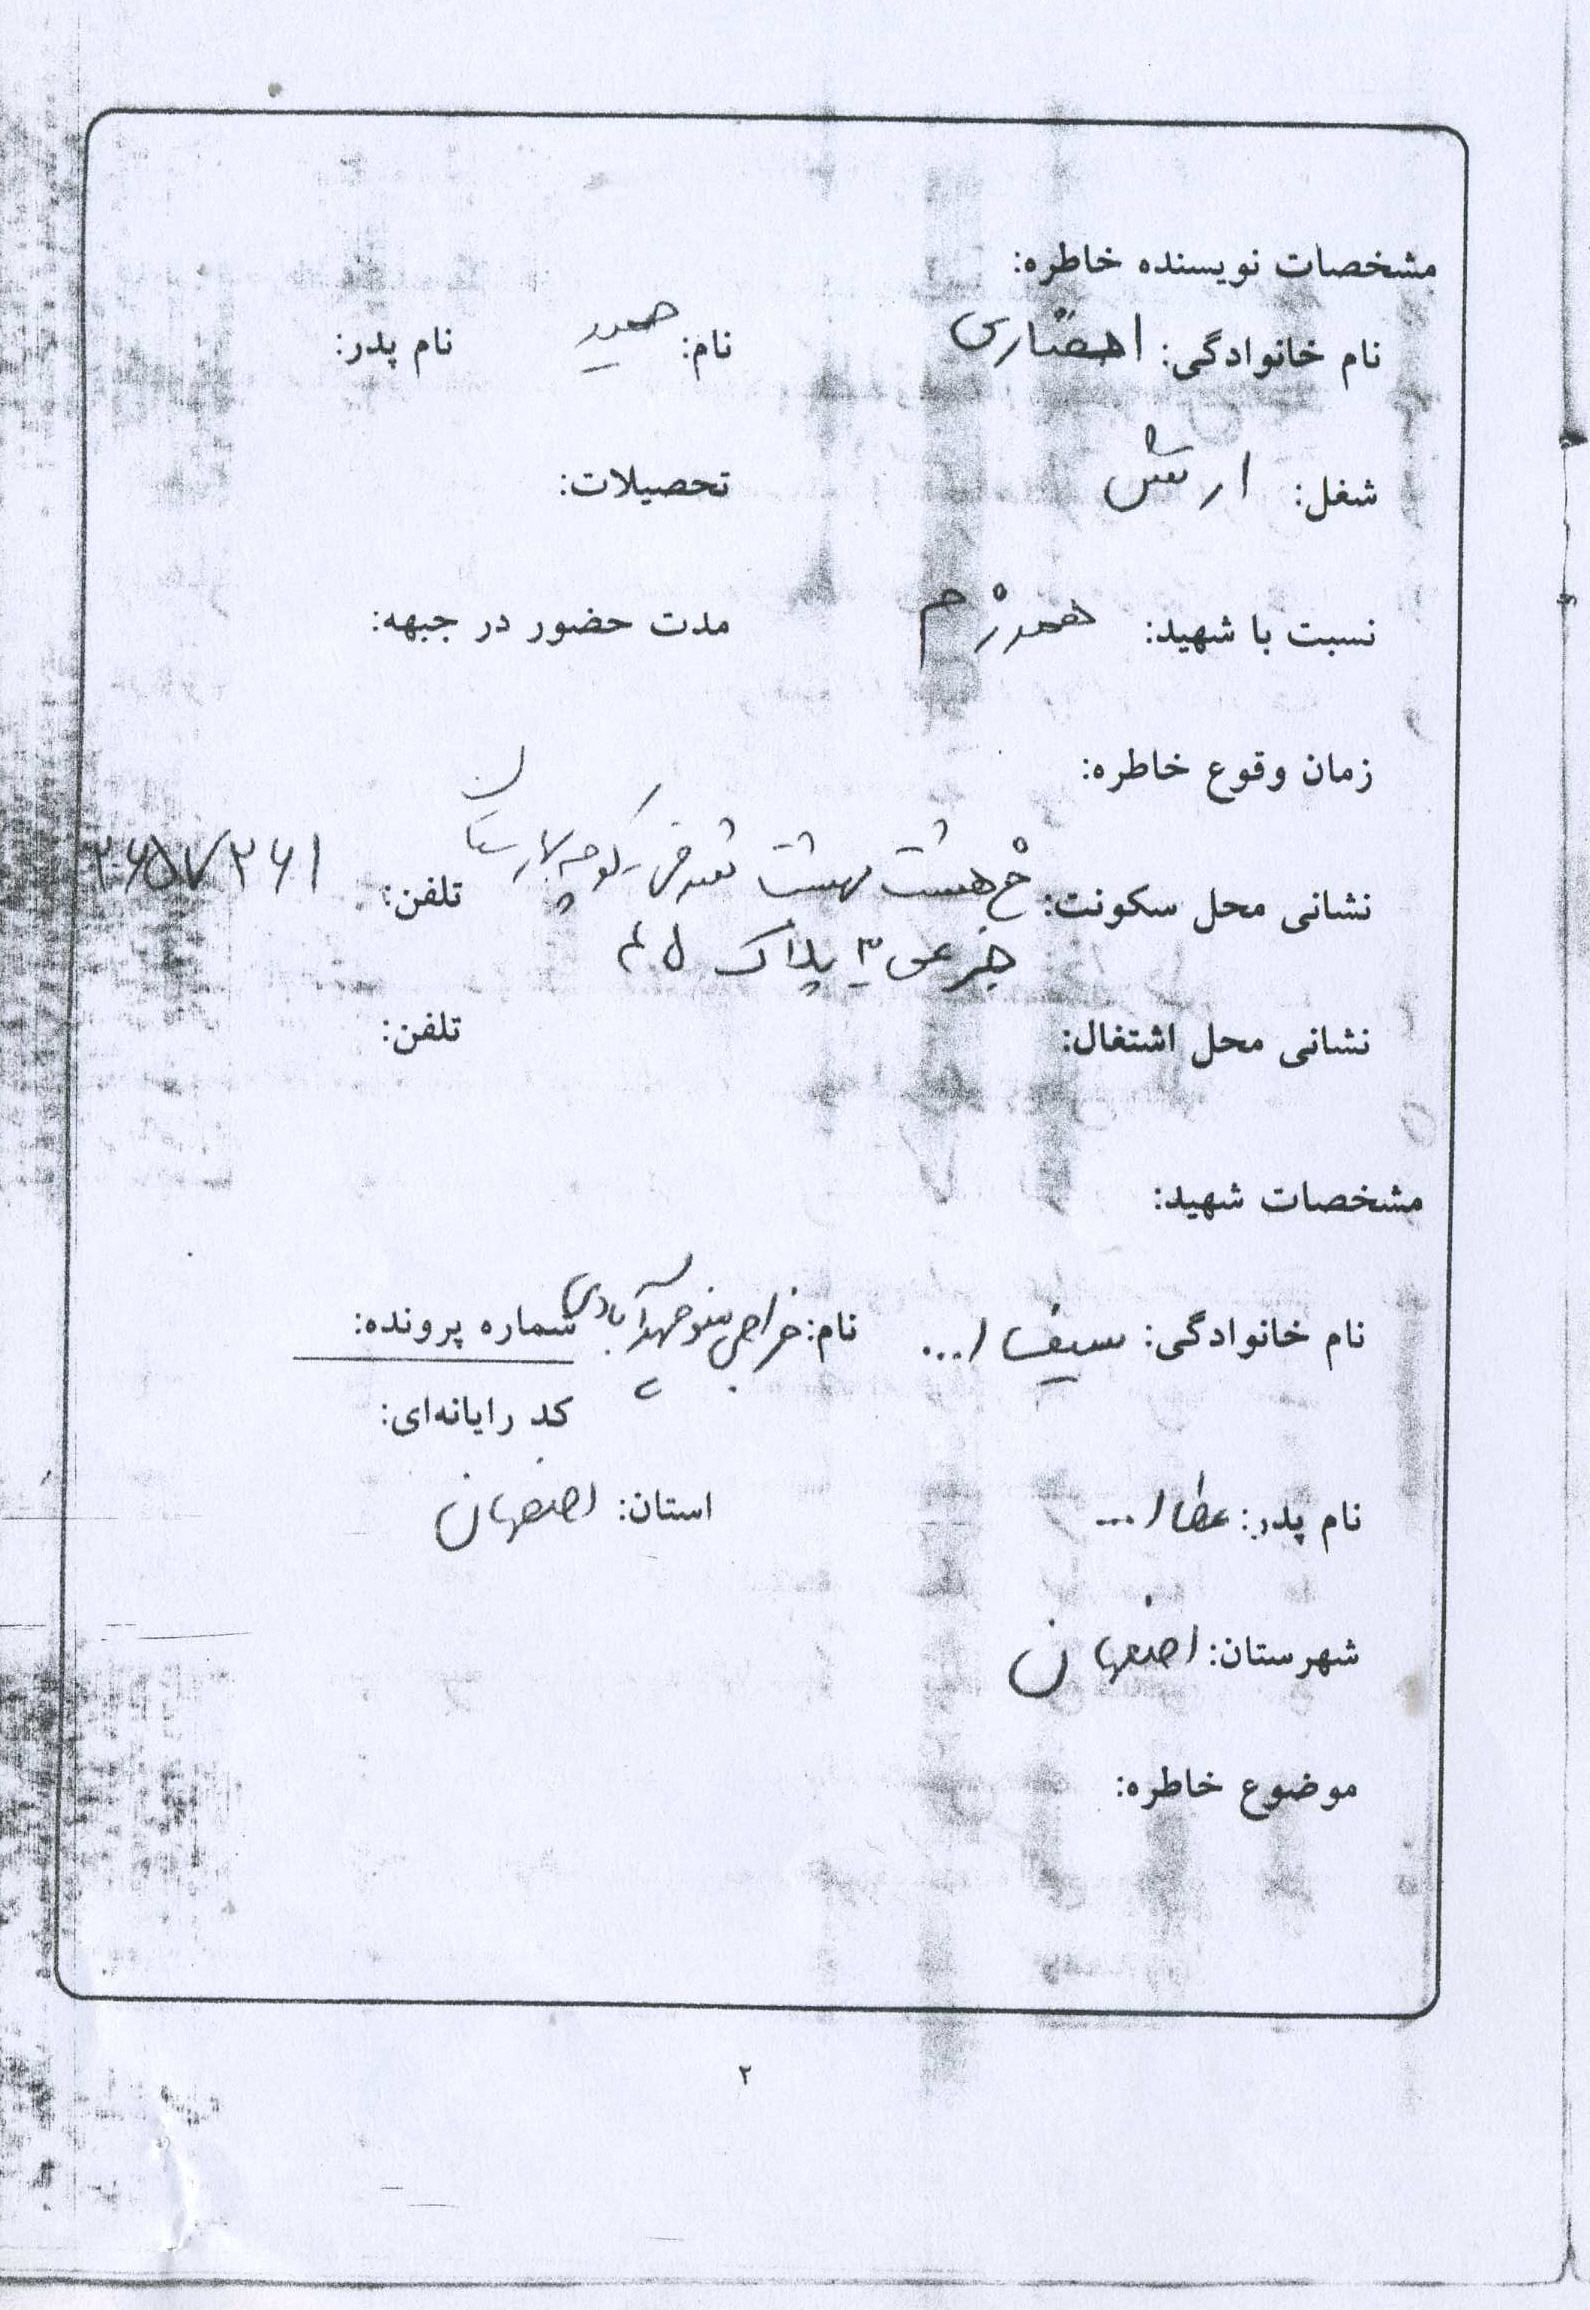 مشخصات نویسنده خاطره:
نام خانوادگی: نام: حمید نام پدر:
شغل: ارتش تحصیلات:
نسبت با شهید: همرزم مدت حضور در جبهه:
زمان وقوع خاطره:
نشانی محل سکونت: خ هشت بهشت شرقی کوچه لارستان تلفن: ۲۶۵۷۲۶۱
فرعی ۳ پلاک
نشانی محل اشتغال: تلفن:
مشخصات شهید:
نام خانوادگی: سیف ا... نام: شماره پرونده:
کد رایانه‌ای:
نام پدر: عطا ا... استان: اصفهان
شهرستان: اصفهان
موضوع خاطره:
۲